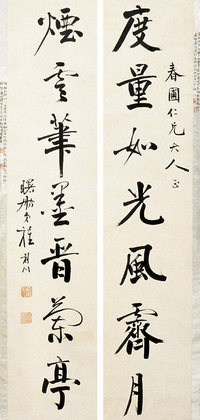 春國仁兄大人正
度量如光風霽月
煙雲筆墨晉蘭亭
弟